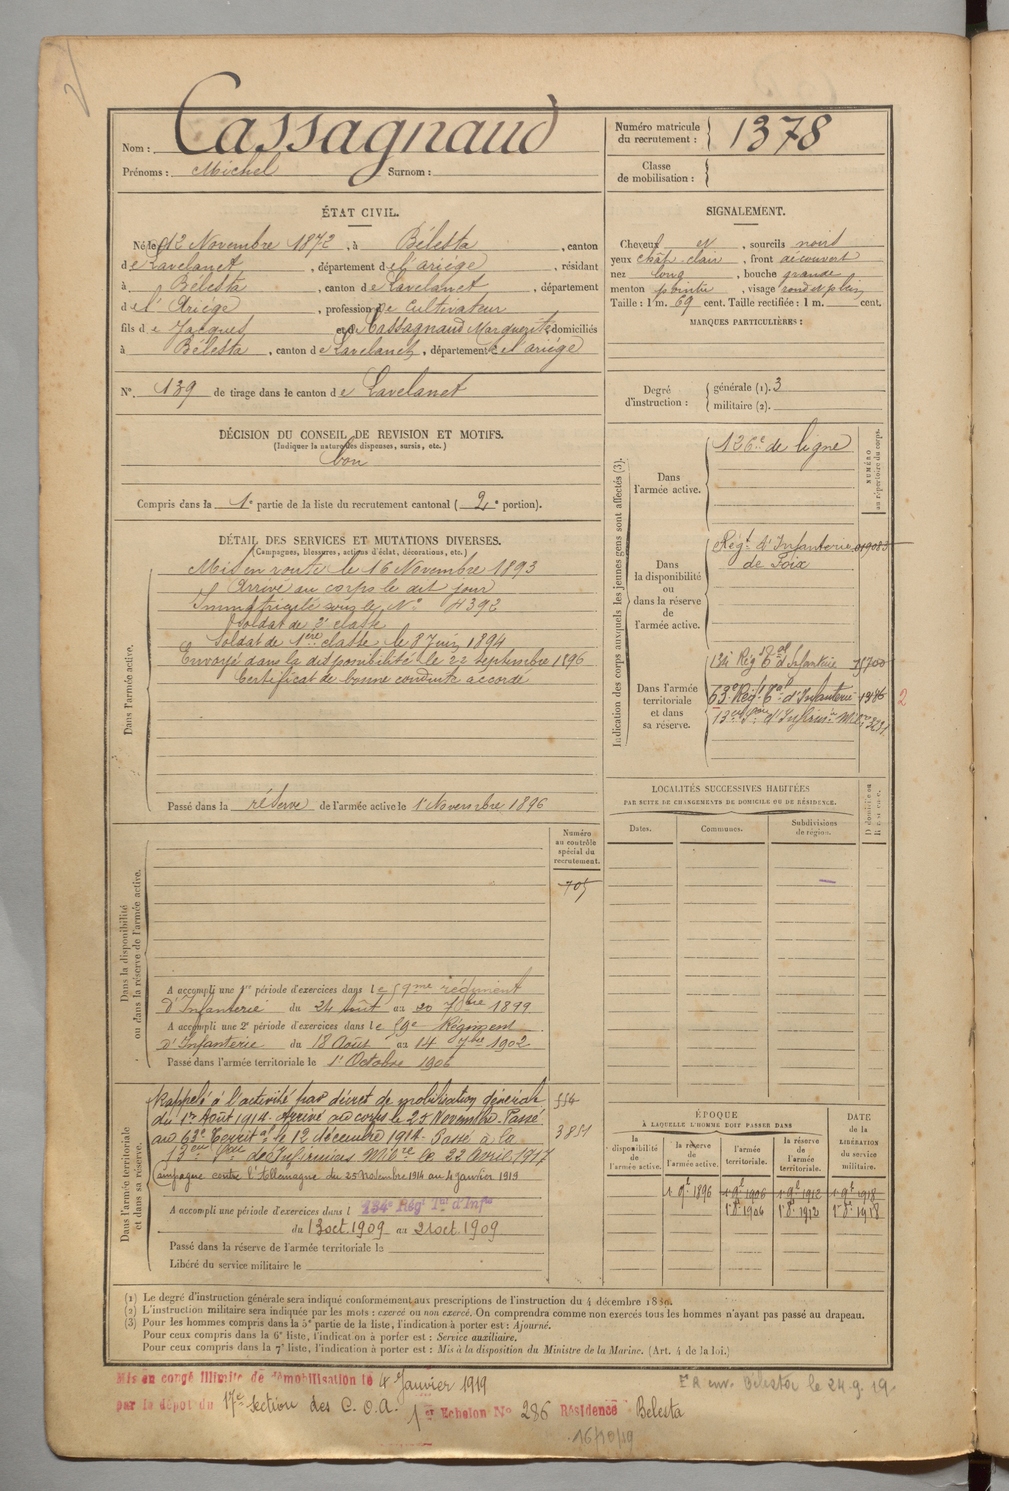 Nom : Cassagnaud
Prénoms : Michel Surnom :
Numéro matricule du recrutement : 1378
Classe de mobilisation :
ÉTAT CIVIL.
Né le 12 Novembre 1872, à Bélesta, canton
de Lavelanet, département de l'ariége, résidant
à Bélesta, canton de Lavelanet, département
de l'Ariége, profession de Cultivateur
fils de Jacques et de Cassagnaud Marguerite, domiciliés
à Bélesta, canton de Lavelanet, département de l'ariége
N° 139 de tirage dans le canton de Lavelanet
DÉCISION DU CONSEIL DE REVISION ET MOTIFS.
(Indiquer la nature des dispenses, sursis, etc.)
bon
Compris dans la 1e partie de la liste du recrutement cantonal ( 2e portion).
SIGNALEMENT.
Cheveux et, sourcils noirs
yeux chât. clair, front découvert
nez long, bouche grande
menton pointu, visage rond et plein
Taille : 1 m. 69 cent. Taille rectifiée : 1 m. cent.
MARQUES PARTICULIÈRES :
Degré d'instruction : générale (1). 3
militaire (2).
Indication des corps auxquels les jeunes gens sont affectés (3).
NUMÉRO au répertoire du corps.
Dans l'armée active. 126e de ligne
Dans la disponibilité ou dans la réserve de l'armée active. Régt d'Infanterie 019083
de Foix
Dans l'armée territoriale et dans sa réserve. 134 Rég Tal d'Infanterie 15700
63e Régt Tal d'Infanterie 1986 2
DÉTAIL DES SERVICES ET MUTATIONS DIVERSES.
(Campagnes, blessures, actions d'éclat, décorations, etc.)
Dans l'armée active.
Mis en route le 16 Novembre 1893
Arrivé au corps le dit jour
Immatriculé sous le N° 4392
Soldat de 2e classe
Soldat de 1ère classe le 8 Juin 1894
Envoyé dans la disponibilité le 22 Septembre 1896
Certificat de bonne conduite accordé
Passé dans la réserve de l'armée active le 1r Novembre 1896
LOCALITÉS SUCCESSIVES HABITÉES
PAR SUITE DE CHANGEMENTS DE DOMICILE OU DE RÉSIDENCE.
Dates. Communes. Subdivisions de région.
Numéro au contrôle spécial du recrutement.
705
Dans la disponibilité ou dans la réserve de l'armée active.
A accompli une 1re période d'exercices dans le 59me régiment
d'Infanterie du 24 août au 20 7bre 1899
A accompli une 2e période d'exercices dans le 59e Régiment
d'Infanterie du 18 Août au 14 7bre 1902
Passé dans l'armée territoriale le 1r Octobre 1906
Dans l'armée territoriale et dans sa réserve.
Rappelé à l'activité par décret de mobilisation générale
du 1er Août 1914. Arrivé au corps le 25 Novembre. Passé
au 63e Territal le 12 décembre 1914. Passé à la 3851
17eme Son de Infirmiers Milre le 22 Avril 1917
Campagne contre l'Allemagne du 25 Novembre 1914 au 4 janvier 1919
A accompli une période d'exercices dans l 134e Régt Tal d'Infie
du 13 oct. 1909 au 21 oct. 1909
Passé dans la réserve de l'armée territoriale le
Libéré du service militaire le
ÉPOQUE
À LAQUELLE L'HOMME DOIT PASSER DANS
la disponibilité de l'armée active. la réserve de l'armée active. l'armée territoriale. la réserve de l'armée territoriale. DATE de la LIBÉRATION du service militaire.
1 9t 1896 1 9t 1906 1 9t 1912 1 9t 1918
1r 8e 1906 1r 8e 1912 1r 8e 1918
(1) Le degré d'instruction générale sera indiqué conformément aux prescriptions de l'instruction du 4 décembre 1889.
(2) L'instruction militaire sera indiquée par les mots : exercé ou non exercé. On comprendra comme non exercés tous les hommes n'ayant pas passé au drapeau.
(3) Pour les hommes compris dans la 5e partie de la liste, l'indication à porter est : Ajourné.
Pour ceux compris dans la 6e liste, l'indication à porter est : Service auxiliaire.
Pour ceux compris dans la 7e liste, l'indication à porter est : Mis à la disposition du Ministre de la Marine. (Art. 4 de la loi.)
Mis en congé illimité de démobilisation le 4 Janvier 1919
par le dépôt du 17e Section des C.O.A. 1er Echelon N° 286 Résidence Bélesta
Bélesta le 24.9.19.
16/10/19